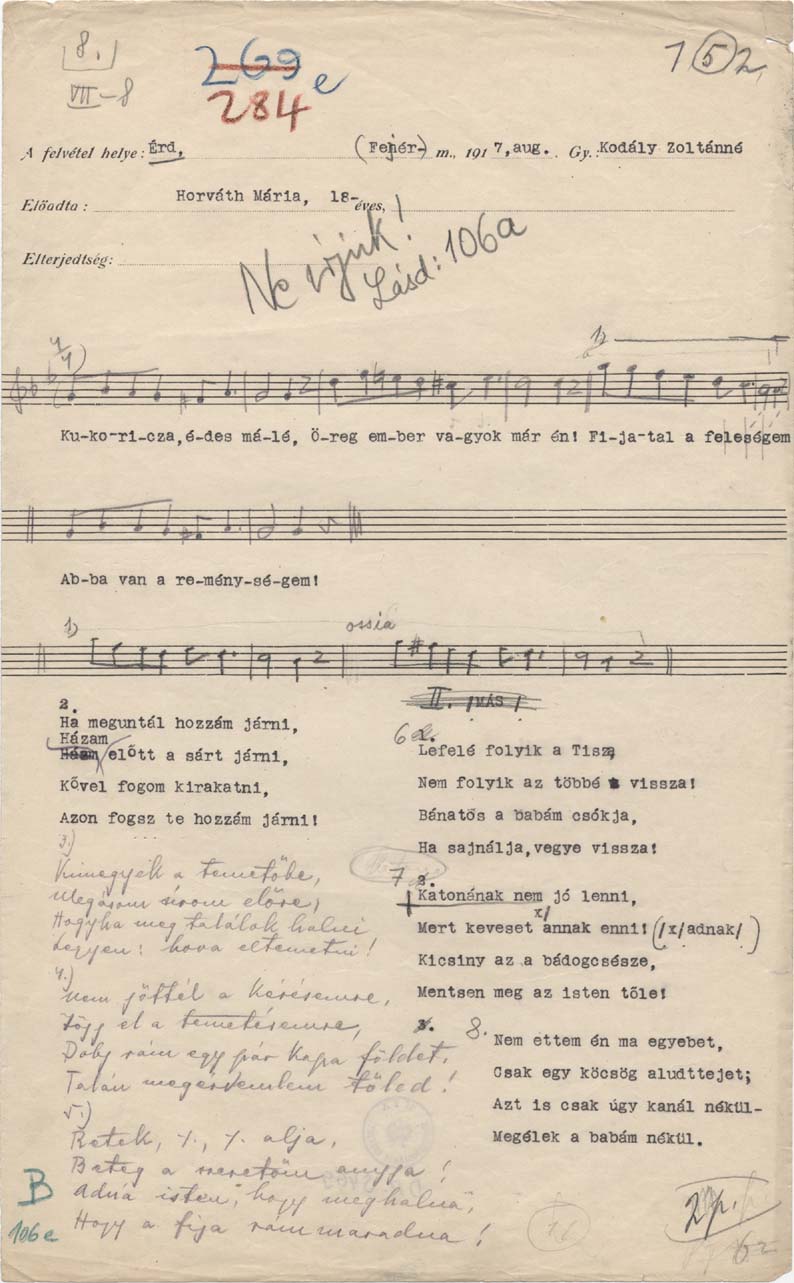 8.
VII-8
269 e
284
1 5 2
A felvétel helye: Érd, (Fejér-) m., 1917, aug. Gy.: Kodály Zoltánné
Előadta: Horváth Mária, 18-éves,
Elterjedtség:
Ne írjuk!
Lásd: 106a
1)
Ku-ko-ri-cza,é-des má-lé, Ö-reg em-ber va-gyok már én! Fi-ja-tal a feleségem
Ab-ba van a re-mény-sé-gem!
1) ossia
2.
Ha meguntál hozzám járni,
Házam
előtt a sárt járni,
Kővel fogom kirakatni,
Azon fogsz te hozzám járni!
3.)
Kimegyék a temetőbe,
Megásom sírom előre,
Hogyha meg találok halni
Legyen: hova eltemetni!
4.)
Nem jöttél a kérésemre,
Jőjj el a temetésemre,
Dobj rám egy pár kapa földet,
Talán megérdemlem tőled!
5.)
Retek, ٪, ٪ alja,
Beteg a szeretőm anyja!
Adná isten, hogy meghalna,
Hogy a fija rám maradna!
B
106e
II. /MÁS/
6 1.
Lefelé folyik a Tisza,
Nem folyik az többé vissza!
Bánatos a babám csókja,
Ha sajnálja,vegye vissza!
7 2.
Katonának nem jó lenni,
Mert keveset x/ annak enni! (/x/adnak/)
Kicsiny az a bádogcsésze,
Mentsen meg az isten tőle!
3. 8.
Nem ettem én ma egyebet,
Csak egy köcsög aludttejet;
Azt is csak úgy kanál nékül-
Megélek a babám nékül.
2p.
62